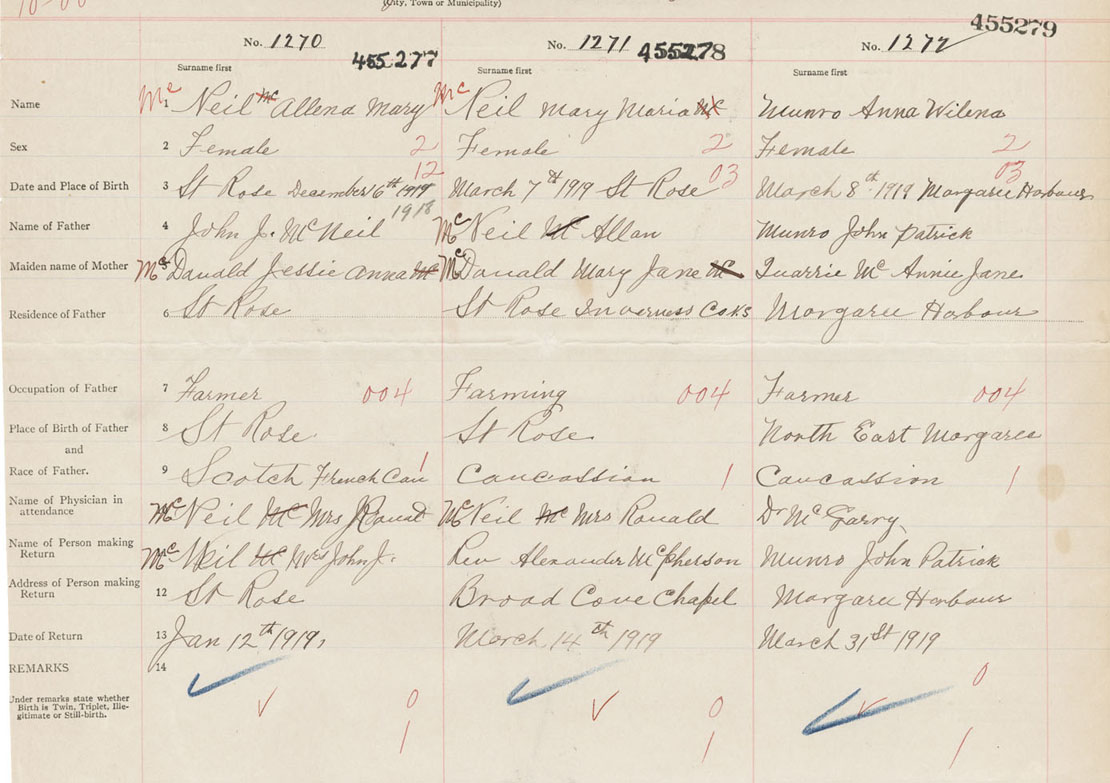 10-00
(City, Town or Municipality)
No. 1270 455277 No. 1271 455278 No. 1272 455279
Surname first Surname first Surname first
Name 1 Mc Neil Mc Allena Mary Mc Neil Mary Maria Mc Munro Anna Wilena
Sex 2 Female 2 Female 2 Female 2
12 03 03
Date and Place of Birth 3 St Rose December 6th 1919 March 7th 1919 St Rose March 8th 1919 Margaree Harbour
1918
Name of Father 4 John J. McNeil Mc Neil Mc Allan Munro John Patrick
Maiden name of Mother Mc Donald Jessie Anna Mc Mc Donald Mary Jane Mc Quarrie Mc Annie Jane
Residence of Father 6 St Rose St Rose Inverness Co NS Margaree Harbour
Occupation of Father 7 Farmer 004 Farming 004 Farmer 004
Place of Birth of Father 8 St Rose St Rose North East Margaree
and
Race of Father. 9 Scotch French Can 1 Caucassian 1 Caucassion 1
Name of Physician in
attendance Mc Neil Mc Mrs Ronald Mc Neil Mc Mrs Ronald Dr McGarry
Name of Person making
Return Mc Neil Mc Mrs John J. Rev Alexander McPherson Munro John Patrick
Address of Person making
Return 12 St Rose Broad Cove Chapel Margaree Harbour
Date of Return 13 Jan 12th 1919, March 14th 1919 March 31st 1919
REMARKS 14
Under remarks state whether
Birth is Twin, Triplet, Ille-
gitimate or Still-birth.
0 0 0
1 1 1